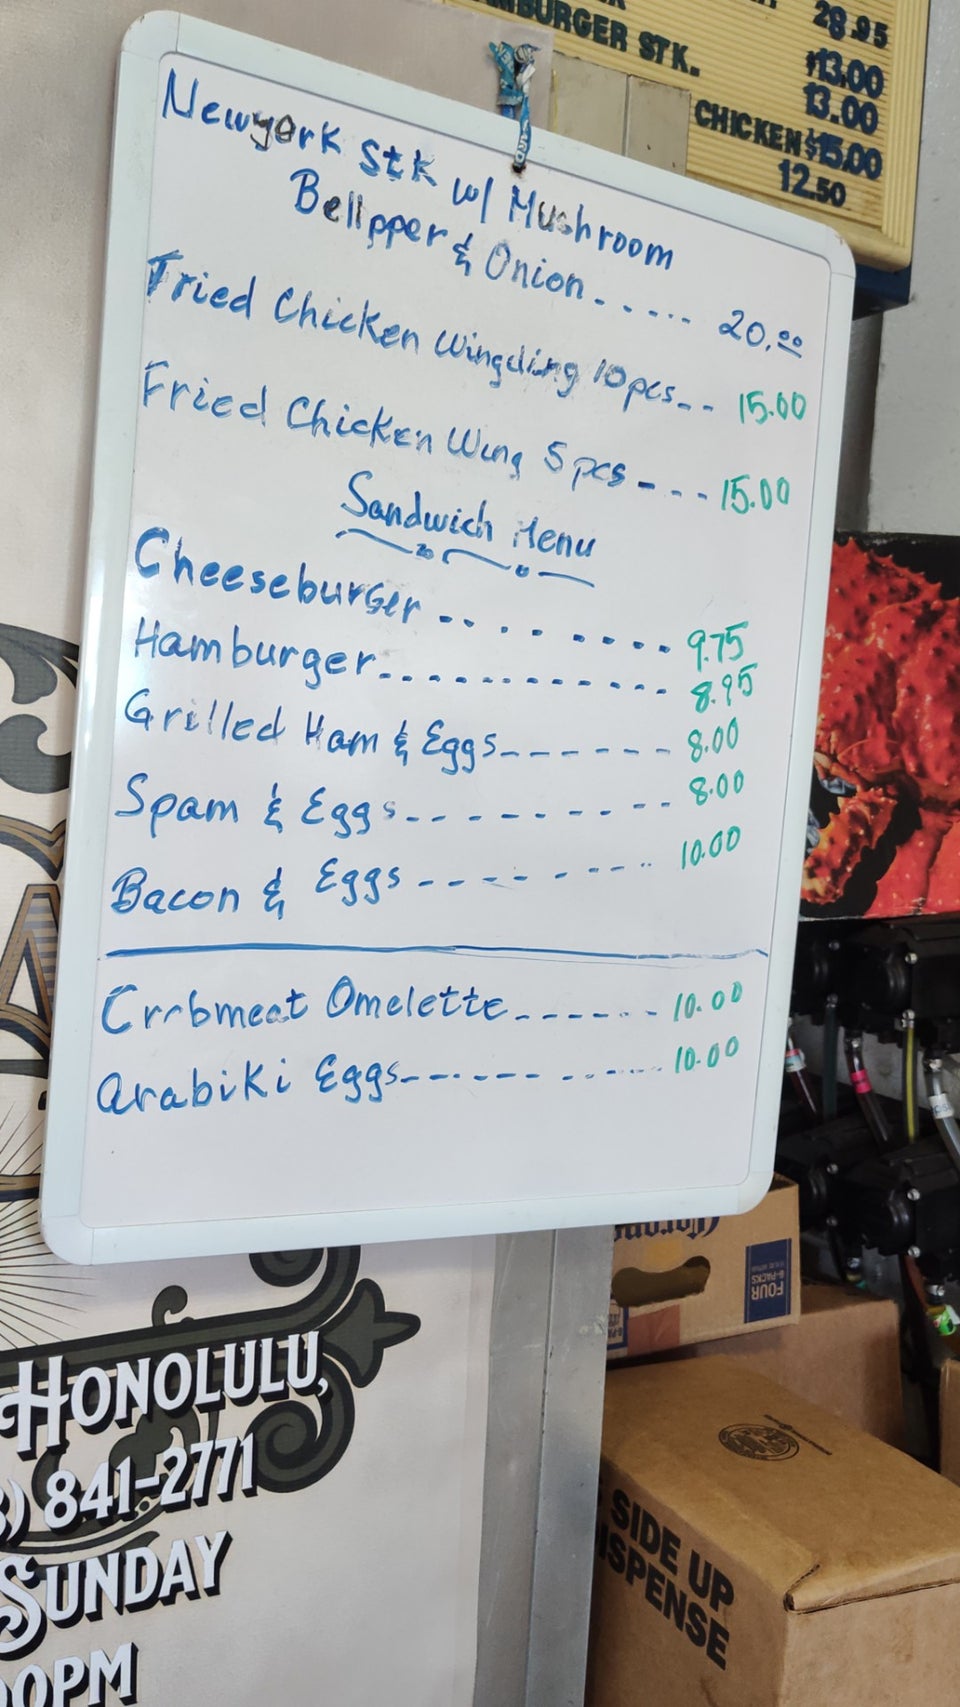 28.95
HAMBURGER STK. $13.00
13.00
CHICKEN $15.00
12.50
Newyork Stk w/ Mushroom
Bellpper & Onion.... 20.00
Fried Chicken Wingding 10pcs-- 15.00
Fried Chicken Wing 5pcs---- 15.00
Sandwich Menu
Cheeseburger......... 9.75
Hamburger............ 8.95
Grilled Ham & Eggs------- 8.00
Spam & Eggs-------- 8.00
Bacon & Eggs -------- 10.00
Crrbmeat Omelette------- 10.00
Arabiki Eggs----------- 10.00
Corona
FOUR
6-PACKS
HONOLULU,
) 841-2771
SUNDAY
00PM
SIDE UP
ISPENSE